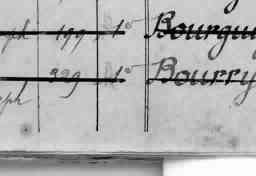 ph 199 1° Bourgu
329 1° Bourry
ph